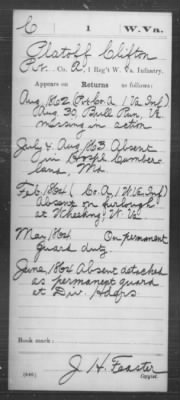 C 1 W. Va.
Platoff Clifton
Pvt., Co. A, 1 Reg't W. Va. Infantry.
Appears on Returns as follows:
Aug 1862 (Pvt Co A 1 Va Inf)
Aug 30, Bull Run, Va
missing in action
July & Aug 1863 Absent
in Hospl Cumber-
land, Md
Feb 1864 (Co. A, 1 W Va Inf)
Absent on furlough
at Wheeling, W Va
May 1864 On permanent
guard duty
June 1864 Absent detached
as permanent guard
at Div. Hdqrs
Book mark:
(546) J. H. Feaster
Copyist.